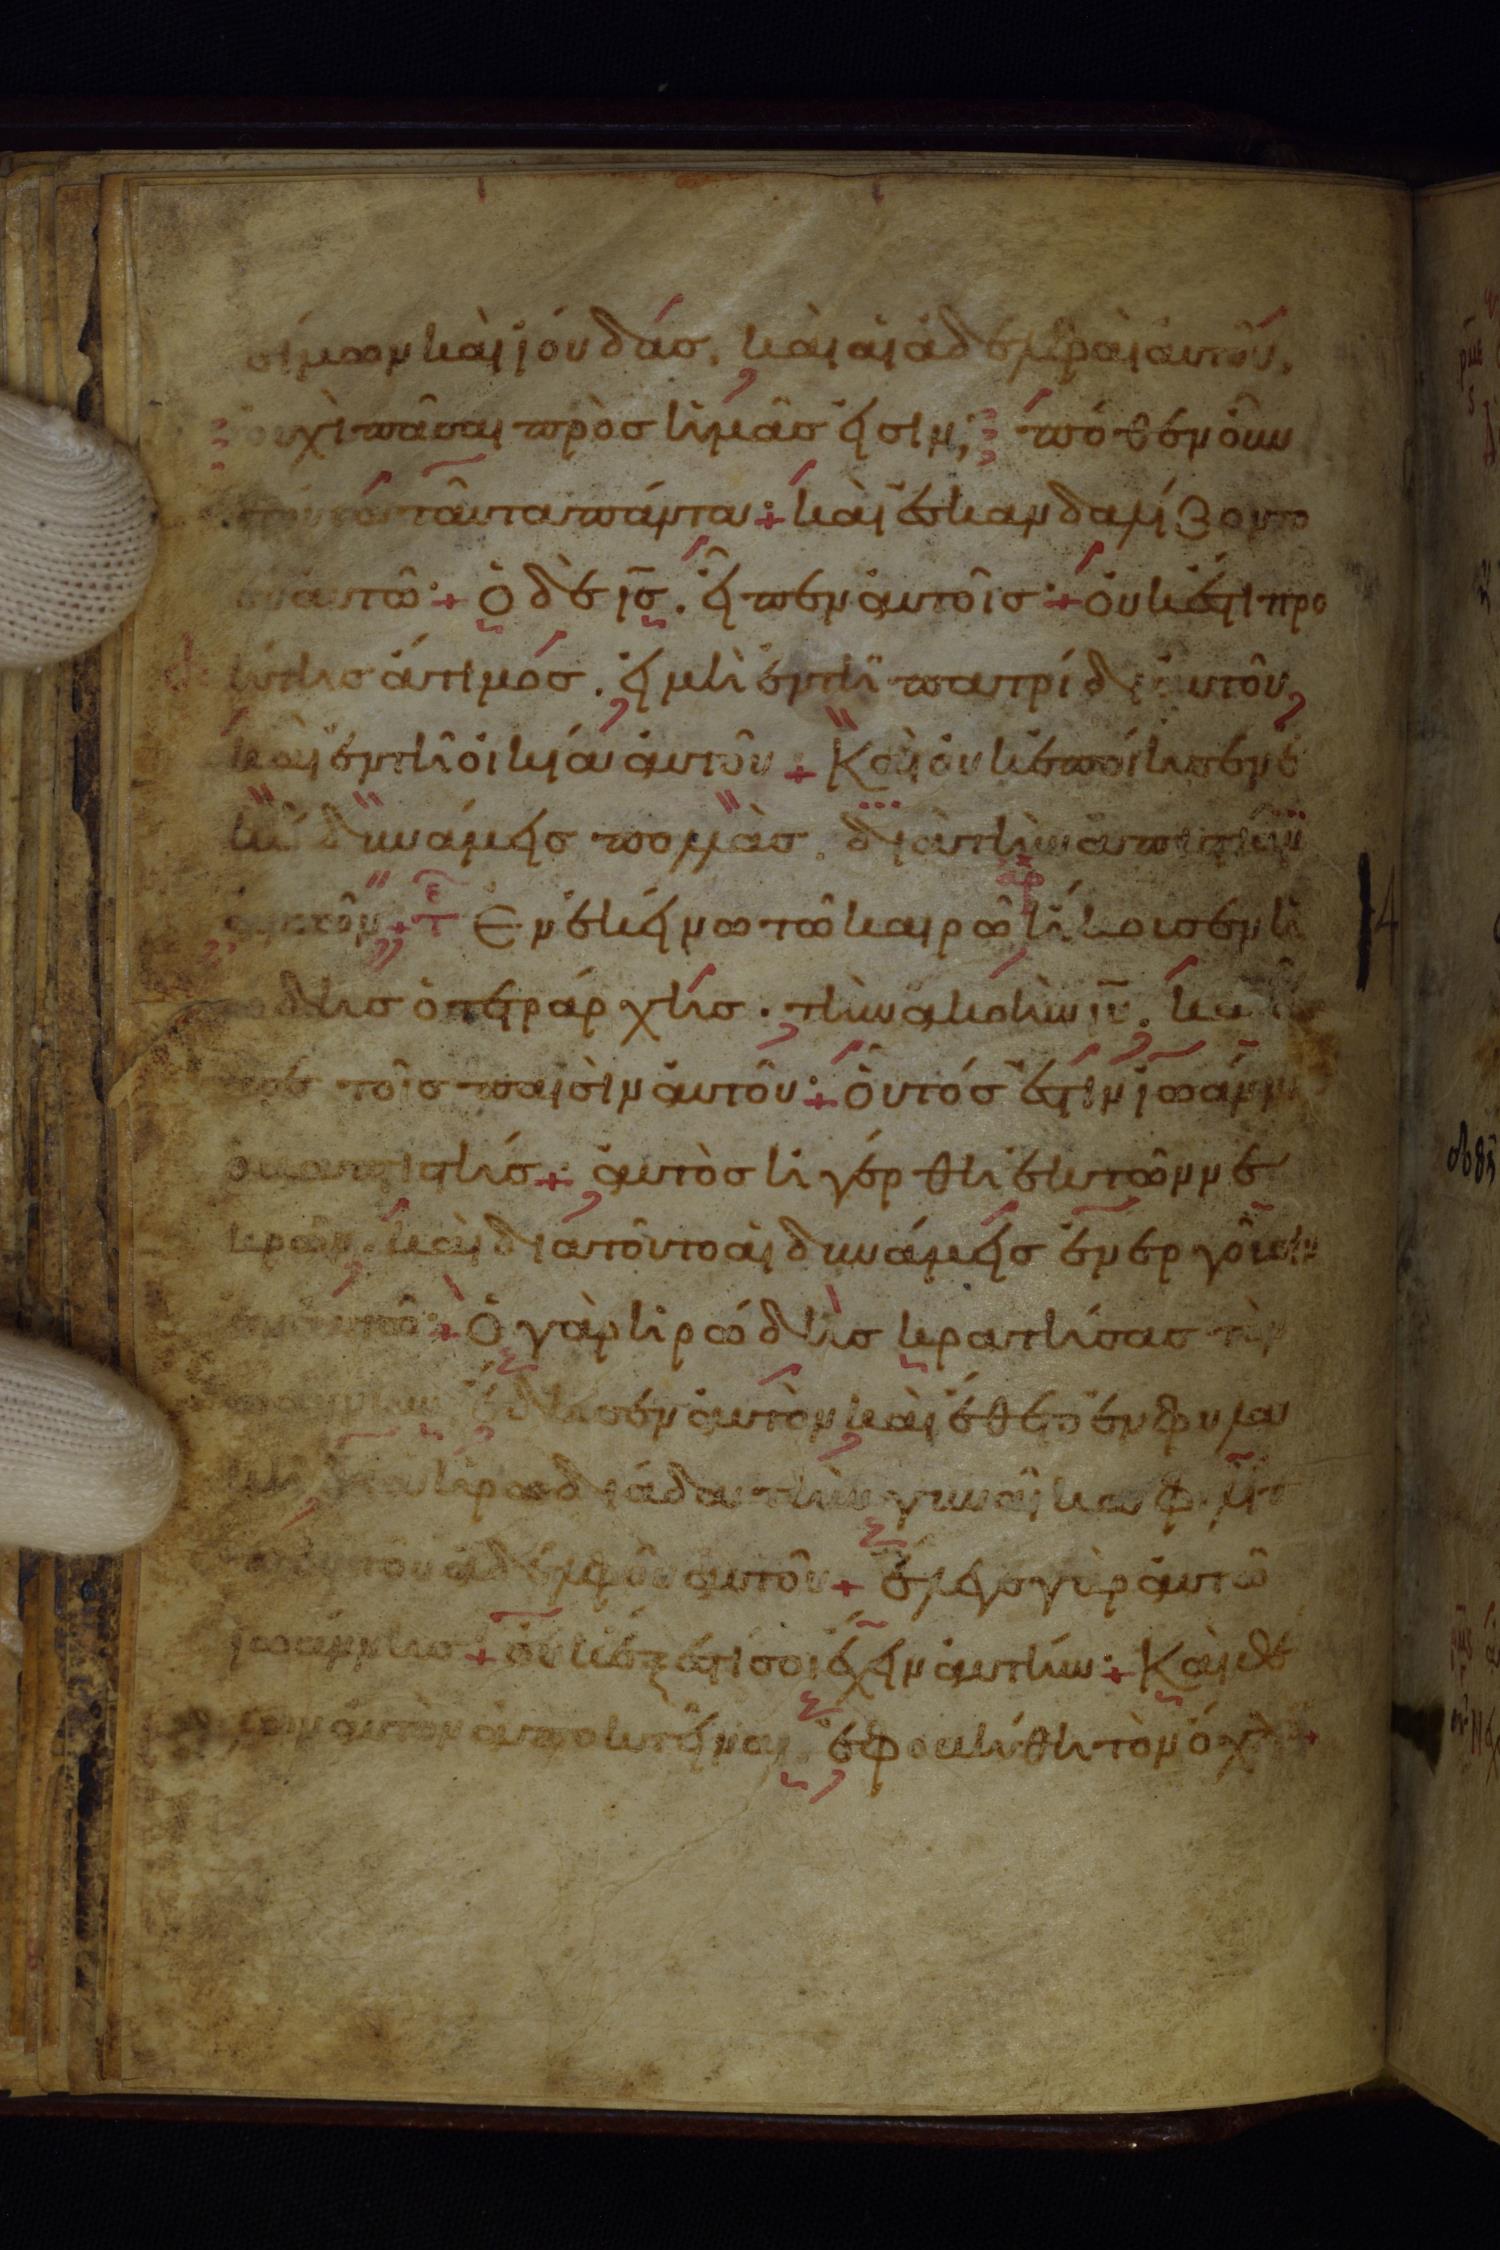 σίμων καὶ ϊούδας. καὶ αἱ ἀδελφαὶ αὐτοῦ.
οὐχὶ πᾶσαι πρὸς ἡμᾶς εἰσιν; πόθεν οὖν
τούτω ταῦτα πάντα· + καὶ ἐσκανδαλίζοντο
ἐν αὐτῶ· + ὁ δὲ ις̄. εἶπεν αὐτοῖς· + οὐκ ἔστι προ
φήτης ἄτιμος. εἰ μὴ ἐν τῆ πατρίδι αὐτοῦ,
καὶ ἐν τῆ οἰκία αὐτοῦ + Καὶ οὐκ ἐποίησεν ἐ
κεῖ δυνάμεις πολλὰς. διὰ τὴν ἀπιστίαν
αὐτῶν· + τε Ἐν ἐκείνω τῶ καιρῶ ἤκουσεν ἡ
ρώδης ὁ τετράρχης. τὴν ἀκοὴν ιῡ. καὶ εἶ
πε τοῖς παισὶν αὐτοῦ· + οὗτός ἐστιν ἰωάνν
ὁ βαπτιστής + αὐτὸς ἠγέρθη ἐκ τῶν νε
κρῶν. καὶ διατοῦτο αἱ δυνάμεις ἐνεργοῦσιν
ἐν αὐτῶ· + Ὁ γὰρ ἡρώδης κρατήσας τὸν
ἰωάννην. ἔδησεν αὐτὸν καὶ ἔθετο ἐν φυλα
κῆ διὰ ἡρωδιάδα τὴν γυναῖκα φιλίπ
που τοῦ ἀδελφοῦ αὐτοῦ + ἔλεγε γὰρ αὐτῶ
ἰωάννης + οὐκ ἔξεστί σοι ἔχειν αὐτήν· + Καὶ θέ
λων αὐτὸν ἀποκτεῖναι, ἐφοβήθη τὸν ὄχλον +
14